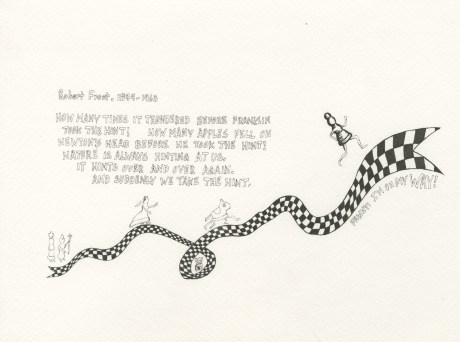 Robert Frost, 1874-1963
HOW MANY TIMES IT THUNDERED BEFORE FRANKLIN
TOOK THE HINT! HOW MANY APPLES FELL ON
NEWTON'S HEAD BEFORE HE TOOK THE HINT!
NATURE IS ALWAYS HINTING AT US.
IT HINTS OVER AND OVER AGAIN.
AND SUDDENLY WE TAKE THE HINT.
I'M ON MY WAY!